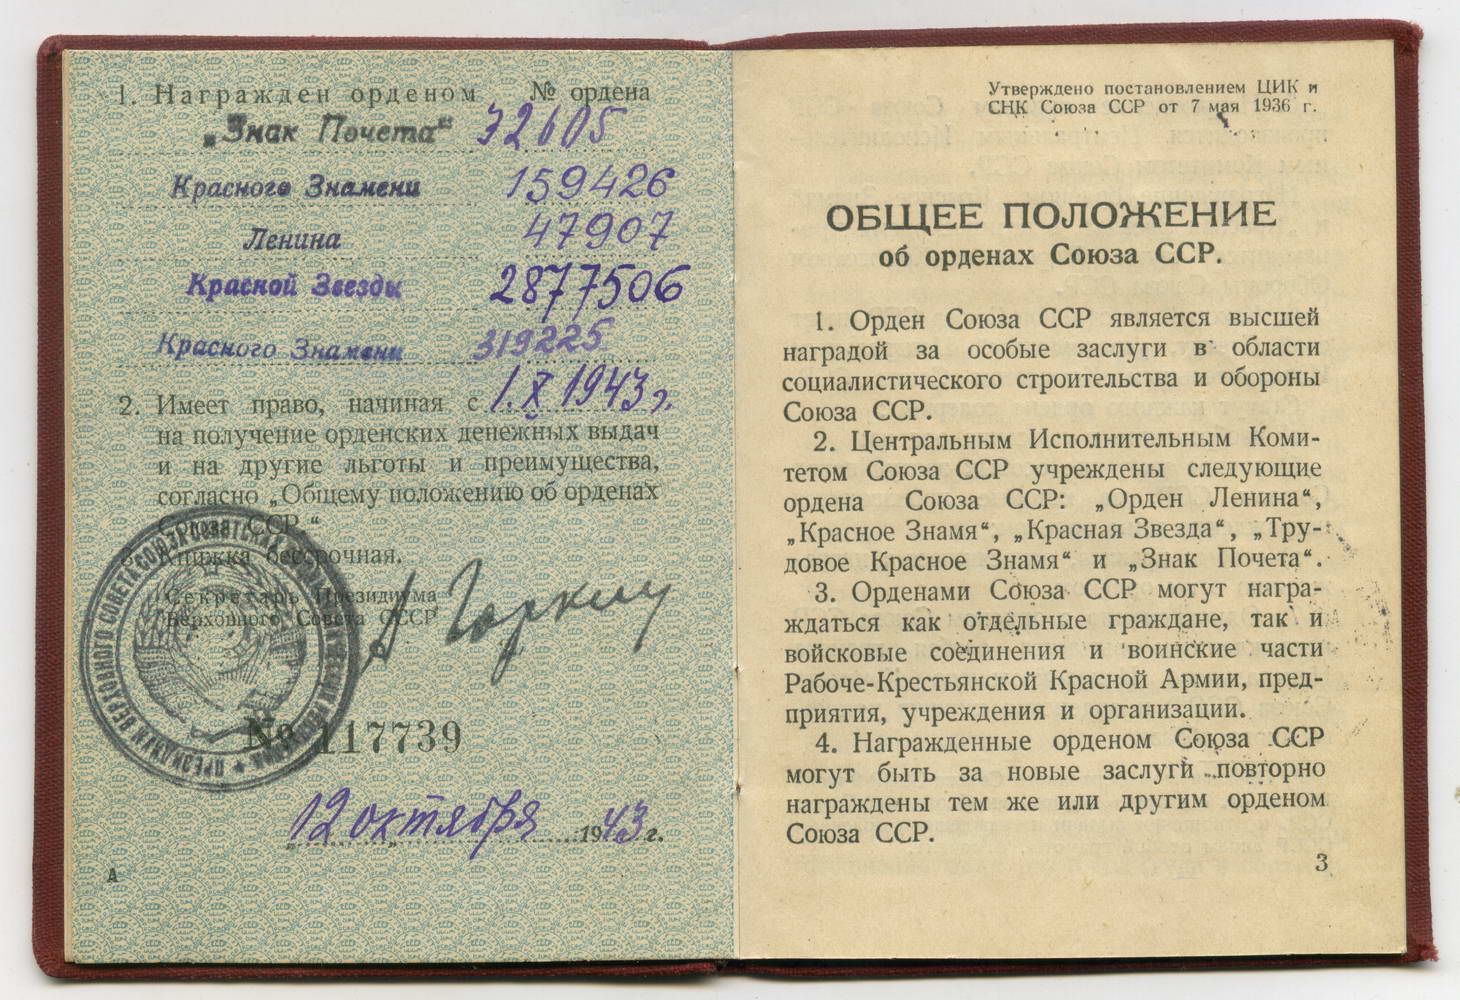 1. Награжден орденом № ордена
„Знак Почета“ 32605
Красного Знамени 159426
Ленина 47907
Красной Звезды 2877506
Красного Знамени 319225
2. Имеет право, начиная с 1.X 1943 г.
на получение орденских денежных выдач
и на другие льготы и преимущества,
согласно „Общему положению об орденах
Союза ССР“
3. Книжка бессрочная.
Секретарь Президиума
Верховного Совета СССР
А Горкин
№ 117739
„12 октября 1943 г.
А
Утверждено постановлением ЦИК и
СНК Союза ССР от 7 мая 1936 г.
ОБЩЕЕ ПОЛОЖЕНИЕ
об орденах Союза ССР.
1. Орден Союза ССР является высшей
наградой за особые заслуги в области
социалистического строительства и обороны
Союза ССР.
2. Центральным Исполнительным Коми-
тетом Союза ССР учреждены следующие
ордена Союза ССР: „Орден Ленина“,
„Красное Знамя“, „Красная Звезда“, „Тру-
довое Красное Знамя“ и „Знак Почета“.
3. Орденами Союза ССР могут награ-
ждаться как отдельные граждане, так и
войсковые соединения и воинские части
Рабоче-Крестьянской Красной Армии, пред-
приятия, учреждения и организации.
4. Награжденные орденом Союза ССР
могут быть за новые заслуги повторно
награждены тем же или другим орденом
Союза ССР.
3